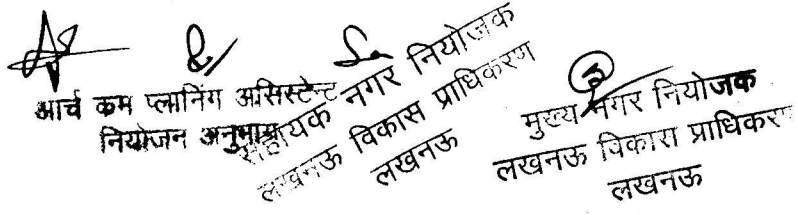 आर्च कम प्लानिंग असिस्टेन्ट
नियोजन अनुभाग
सहायक नगर नियोजक
लखनऊ विकास प्राधिकरण
लखनऊ
मुख्य नगर नियोजक
लखनऊ विकास प्राधिकरण
लखनऊ